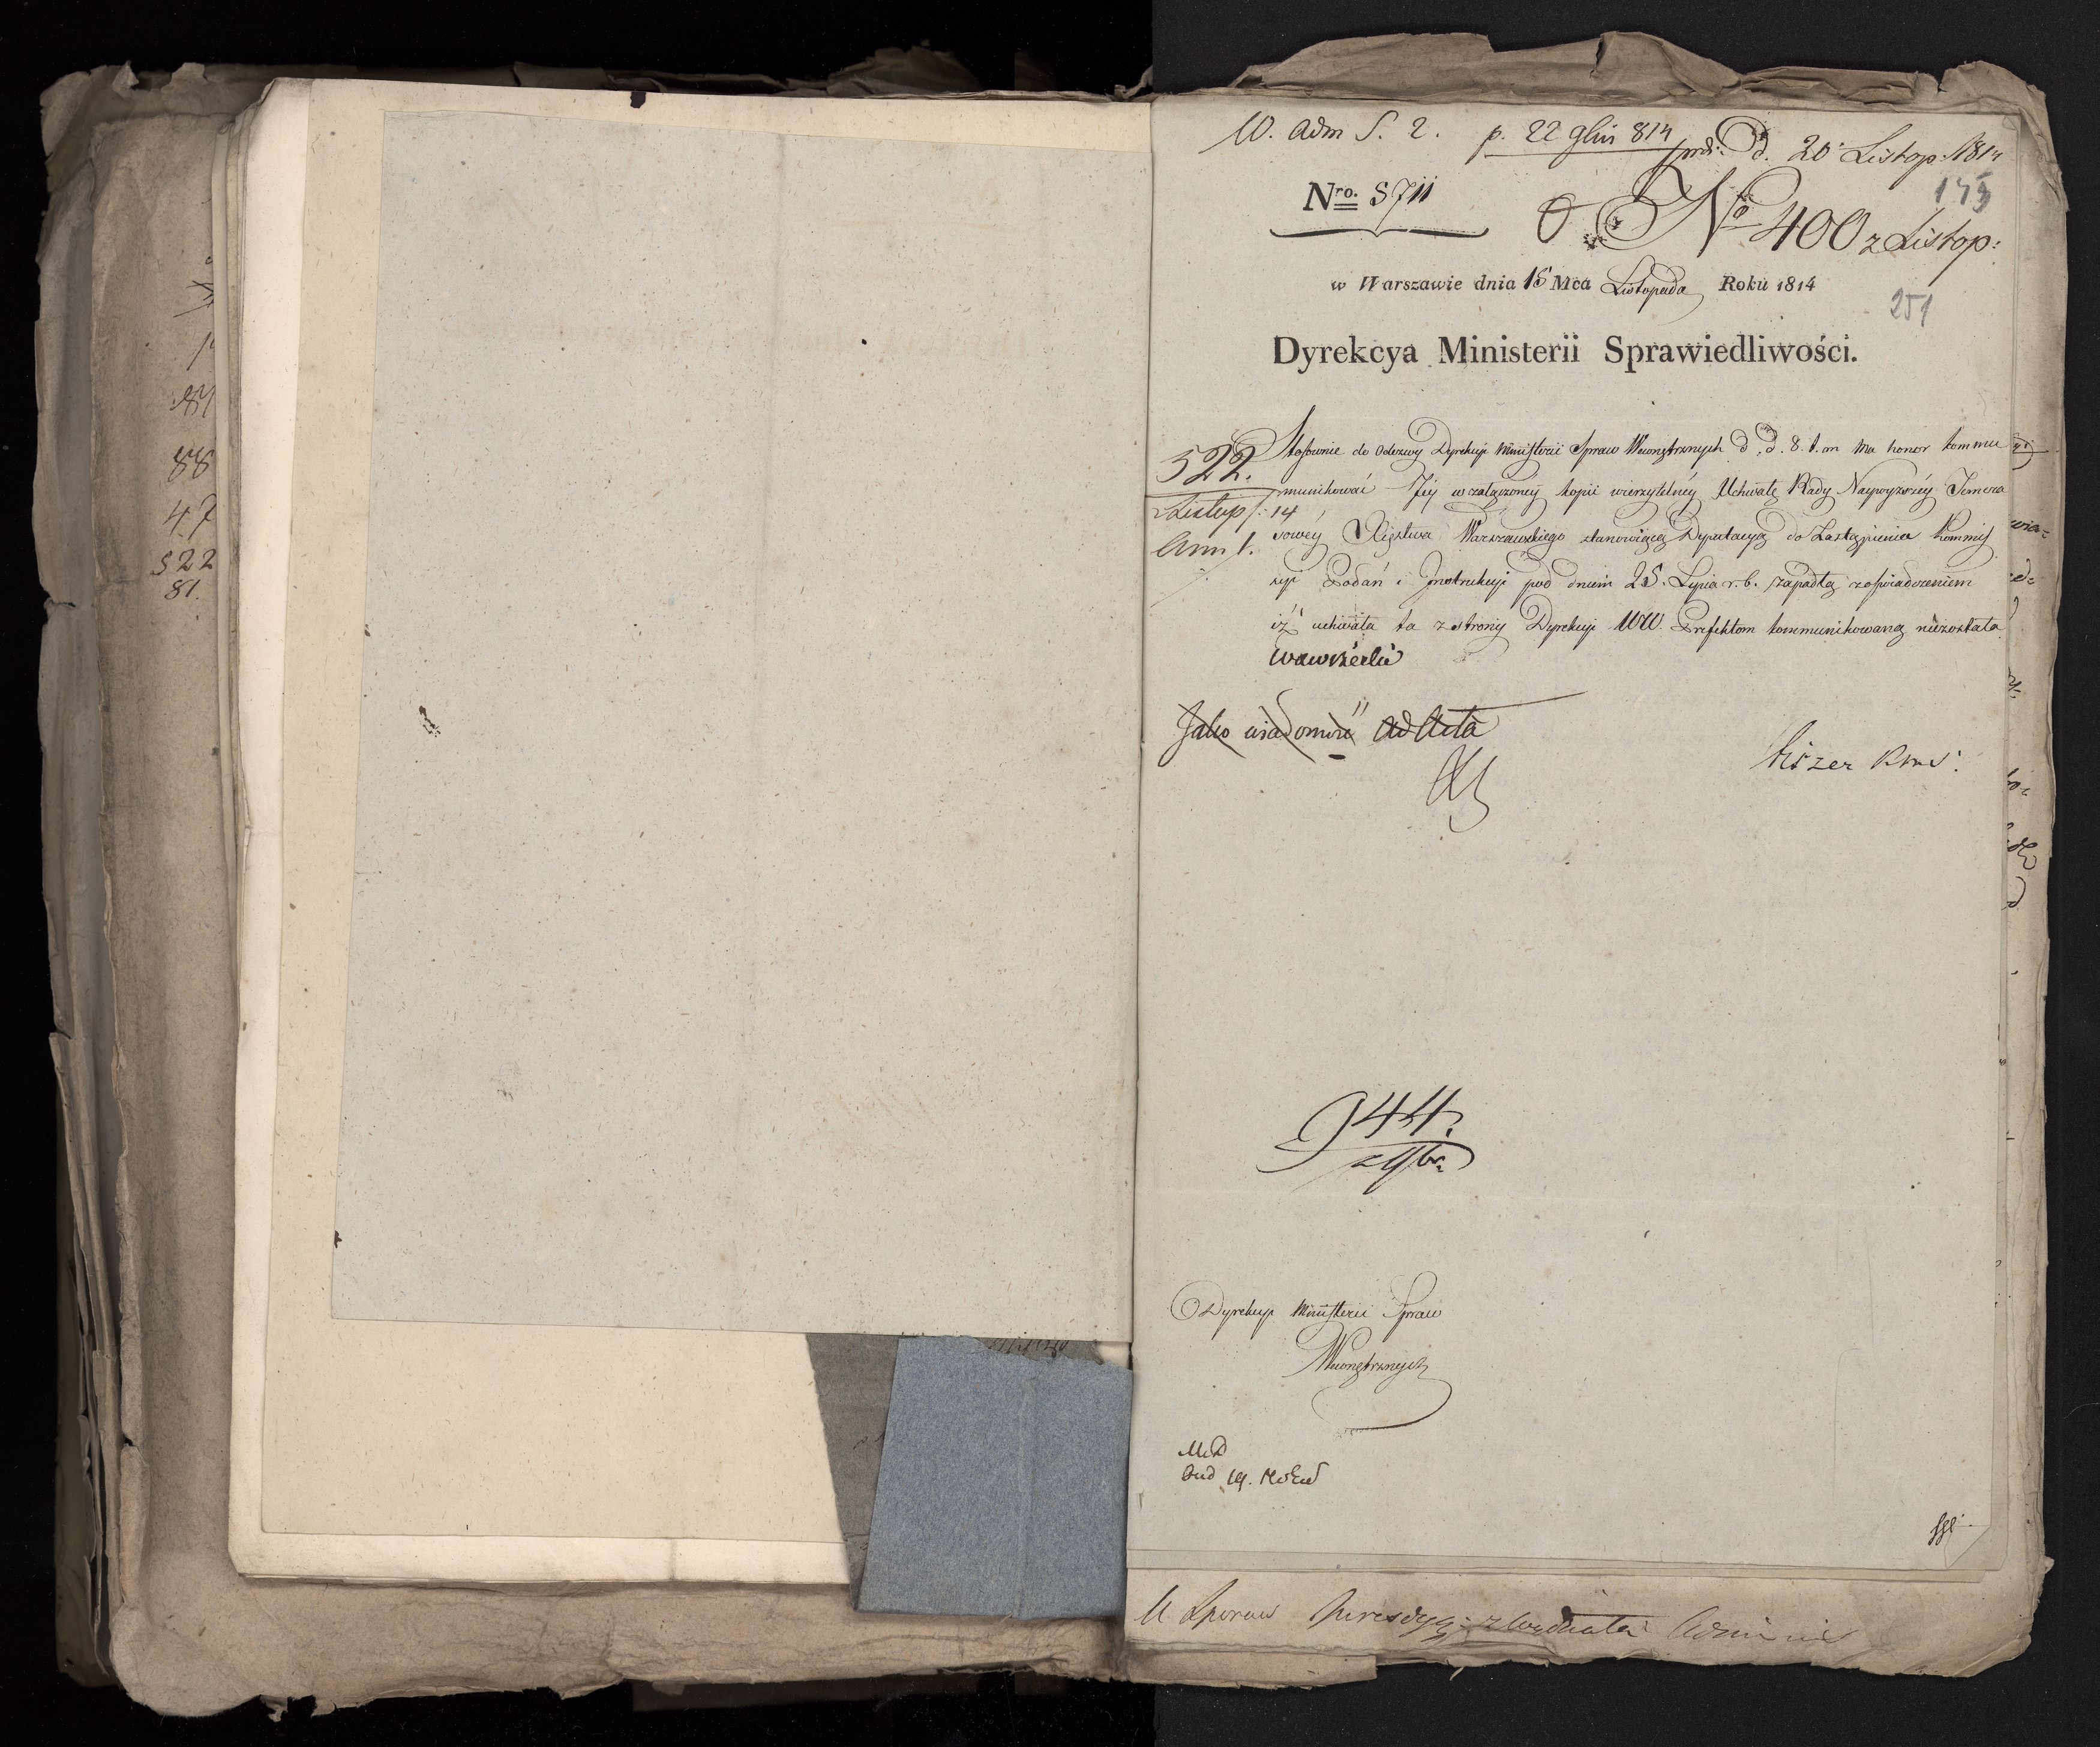 W. Adm S. 2. p. 22 9bris 814
prd: d. 20 Listop: 1814
Nro. 5711
145
No 400 z Listop:
w Warszawie dnia 15 Mca Listopada Roku 1814
251
Dyrekcya Ministerii Sprawiedliwości.
522.
Listop: 14
Ann 1.
Stosownie do Odezwy Dyrekcyi Ministerii Spraw Wewnętrznych d. d. 8. t. m ma honor kommu
munikować Jey w załączoney kopii wierzytelney Uchwałę Rady Naywyższey Tymcza
sowey Xięstwa Warszawskiego stanowiącą Deputacyą do Zastąpienia Kommis
syi Podań i Instrukcyi pod dniem 25. Lipca r. b. zapadłą z oświadczeniem
iż uchwała ta z strony Dyrekcyi WW. Prefektom kommunikowaną niezostała
Wawrzecki
Jako wiadomość ad Acta
944.
z 9br.
Dyrekcyi Ministerii Spraw
Wewnętrznych
88
47
522
81.